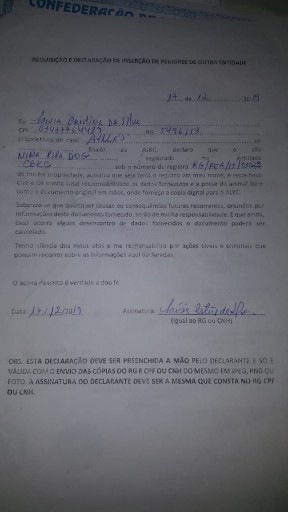 CONFEDERAÇÃO
REQUISIÇÃO E DECLARAÇÃO DE INSERÇÃO DE PEDIGREE DE OUTRA ENTIDADE
17 de 12
Eu
CPF RG
proprietário do canil
filiado ao declaro que o cão
NINA DOG registrado na entidade
CBKC sob o número do registro RG/
de minha propriedade, autorizo que seja feito o registro em meu nome, e reconheço
que é de minha total responsabilidade os dados fornecidos e a prova do animal bem
como o documento original em mãos, onde forneço a cópia digital para o
Sabendo-se que quaisquer causas ou consequências futuras recorrentes, oriundos por
informações deste documento fornecido, serão de minha responsabilidade. E que ainda,
caso ocorra algum desencontro de dados fornecidos o documento poderá ser
cancelado.
Tenho ciência dos meus atos e me responsabilizo por ações cíveis e criminais que
possam recorrer sobre as informações aqui declaradas.
O acima descrito é verdade e dou fé
Data: 17/12/2019 Assinatura:
(Igual ao RG ou CNH)
OBS: ESTA DECLARAÇÃO DEVE SER PREENCHIDA A MÃO PELO DECLARANTE E SÓ É
VÁLIDA COM O ENVIO DAS CÓPIAS DO RG E CPF OU CNH DO MESMO EM JPEG, PNG OU
FOTO. A ASSINATURA DO DECLARANTE DEVE SER A MESMA QUE CONSTA NO RG CPF
OU CNH.